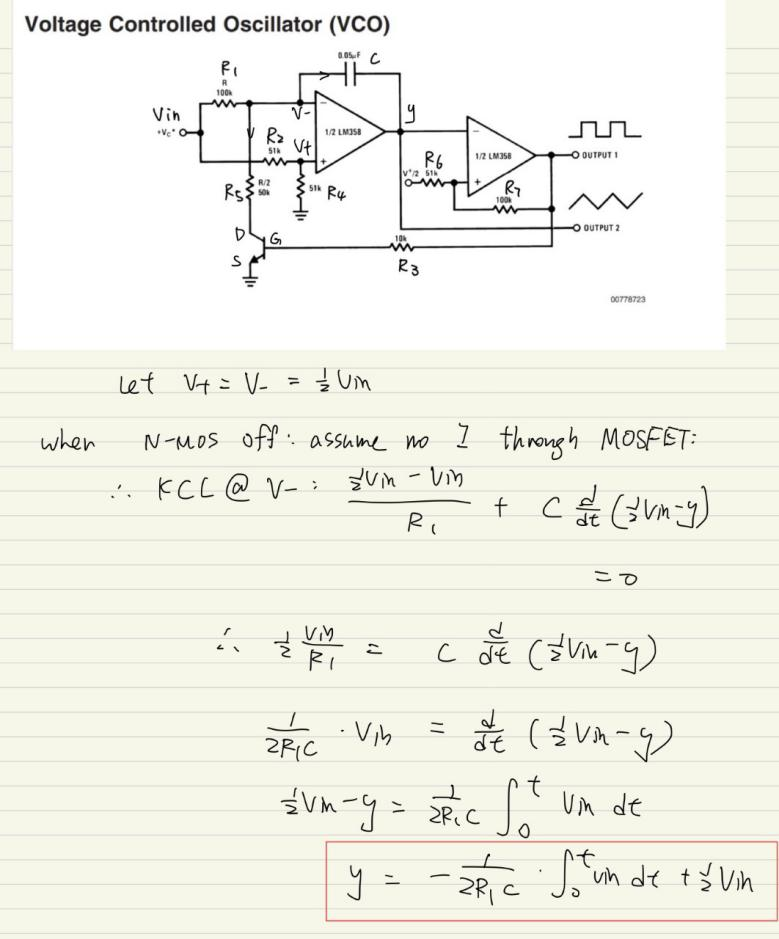 Voltage Controlled Oscillator (VCO)
0.05µF C
R1
R
100k
Vin
+Vc*
V-
y
R2
51k
V+
1/2 LM358
R6
V+/2 51k
1/2 LM358
OUTPUT 1
R5
R/2
50k
51k R4
R7
100k
OUTPUT 2
D
G
S
10k
R3
00778723
Let V+ = V- = 1/2 Vin
when N-MOS off: assume no I through MOSFET:
∴ KCL @ V-: (1/2 Vin - Vin)/R1 + C d/dt (1/2 Vin - y)
= 0
∴ 1/2 Vin/R1 = C d/dt (1/2 Vin - y)
1/(2R1C) · Vin = d/dt (1/2 Vin - y)
1/2 Vin - y = 1/(2R1C) ∫₀ᵗ Vin dt
y = - 1/(2R1C) · ∫₀ᵗ Vin dt + 1/2 Vin